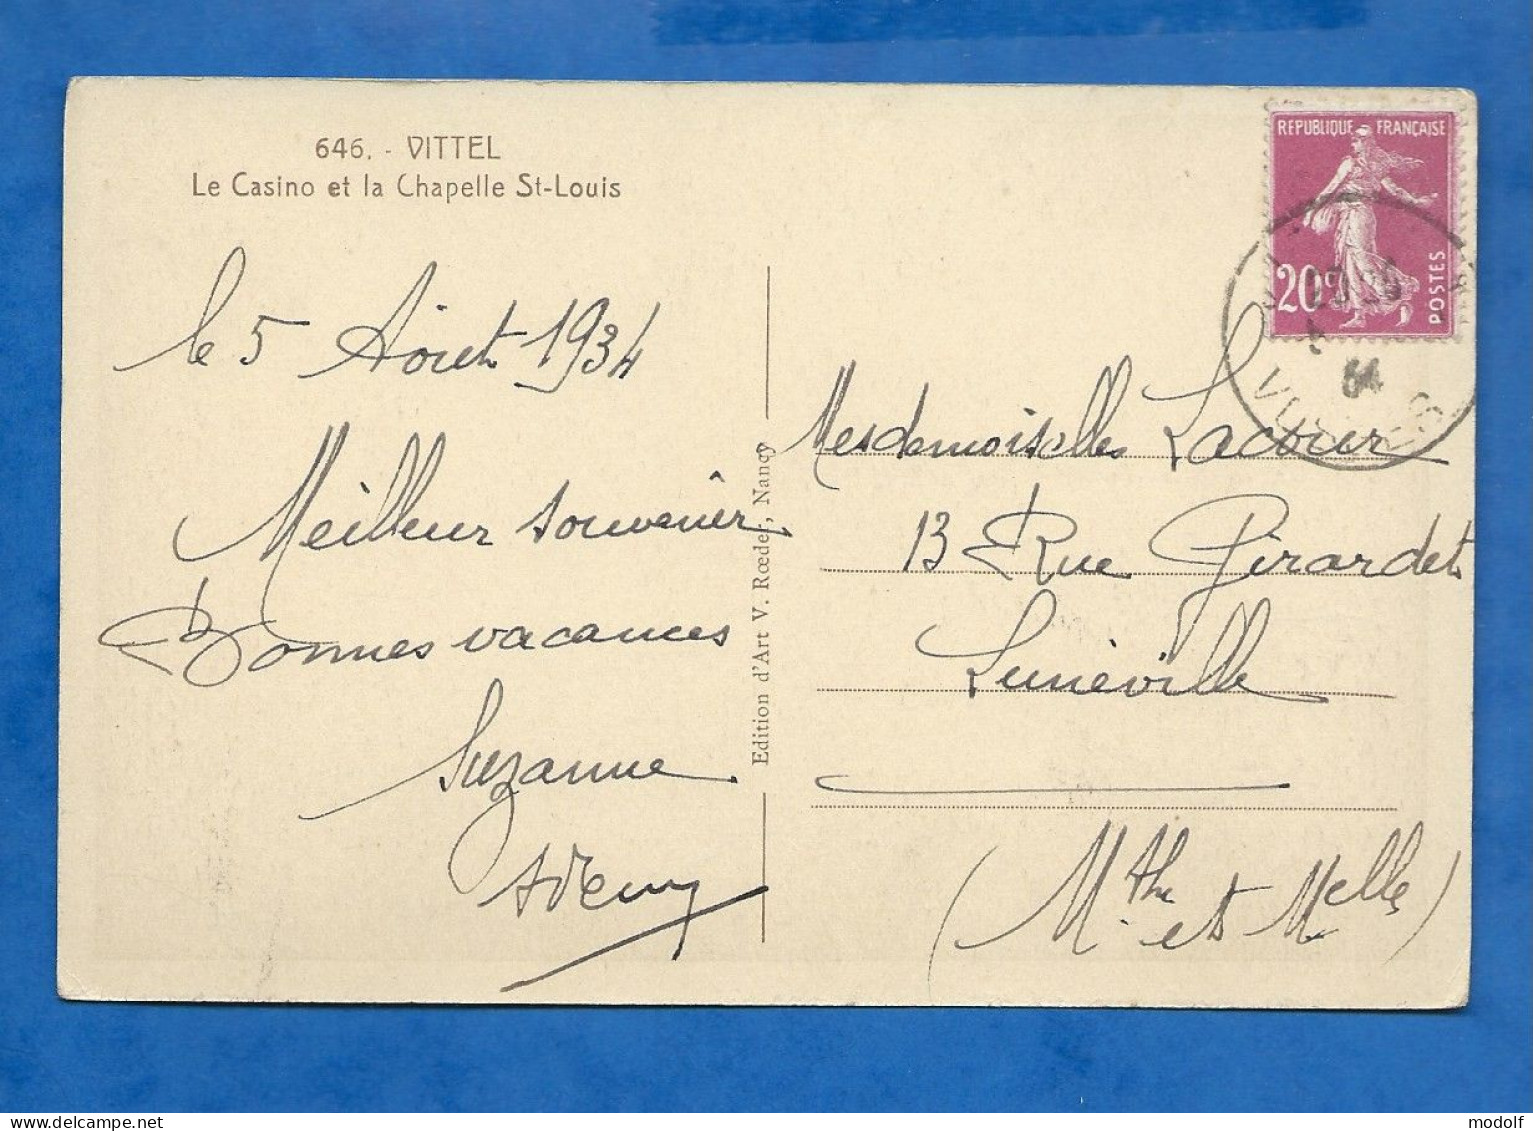 646. - VITTEL
Le Casino et la Chapelle St-Louis
le 5 Août 1934
Meilleur souvenir
Bonnes vacances
Suzanne
Edition d'Art V. Rœder, Nancy
REPUBLIQUE FRANÇAISE
20c
POSTES
34
VOSGES
Mesdemoiselles Lacour
13 Rue Girardet
Lunéville
(Mthe et Melle)
www.delcampe.net
modolf